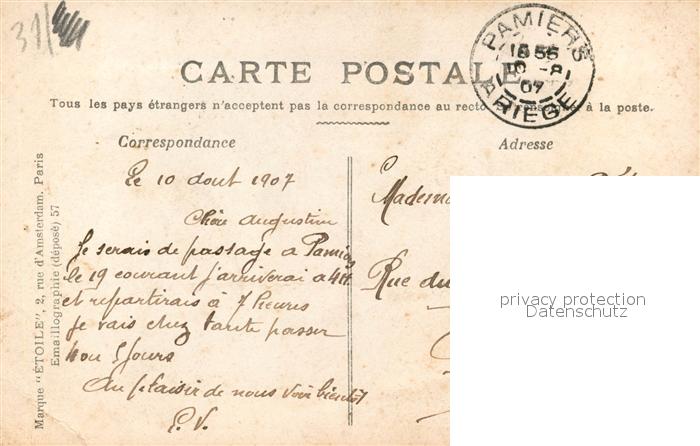 31/
PAMIERS
18 55
-8
07
ARIEGE
CARTE POSTALE
Tous les pays étrangers n'acceptent pas la correspondance au recto à la poste.
Correspondance
Adresse
Le 10 aout 1907
Chère augustine
Je serais de passage a Pamiers
le 19 courant j'arriverai a 4H
et repartirais à 7 heures
je vais chez tante passer
5 jours
Au plaisir de nous voir bientôt
E. V.
Rue du
privacy protection
Datenschutz
Marque "ÉTOILE", 2, rue d'Amsterdam. Paris
Emaillographie (déposé) 57